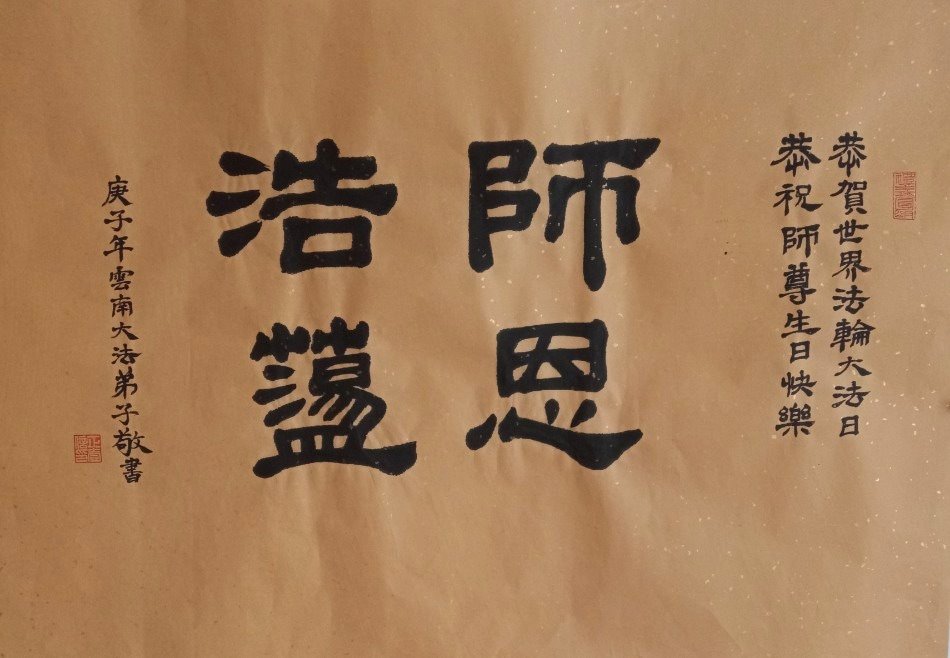 恭賀世界法輪大法日
恭祝師尊生日快樂
師恩
浩蘯
庚子年雲南大法弟子敬書